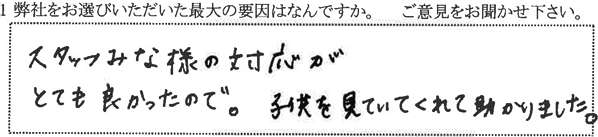 1 弊社をお選びいただいた最大の要因はなんですか。 ご意見をお聞かせ下さい。
スタッフみな様の対応が
とても良かったので。 子供を見ていてくれて助かりました。